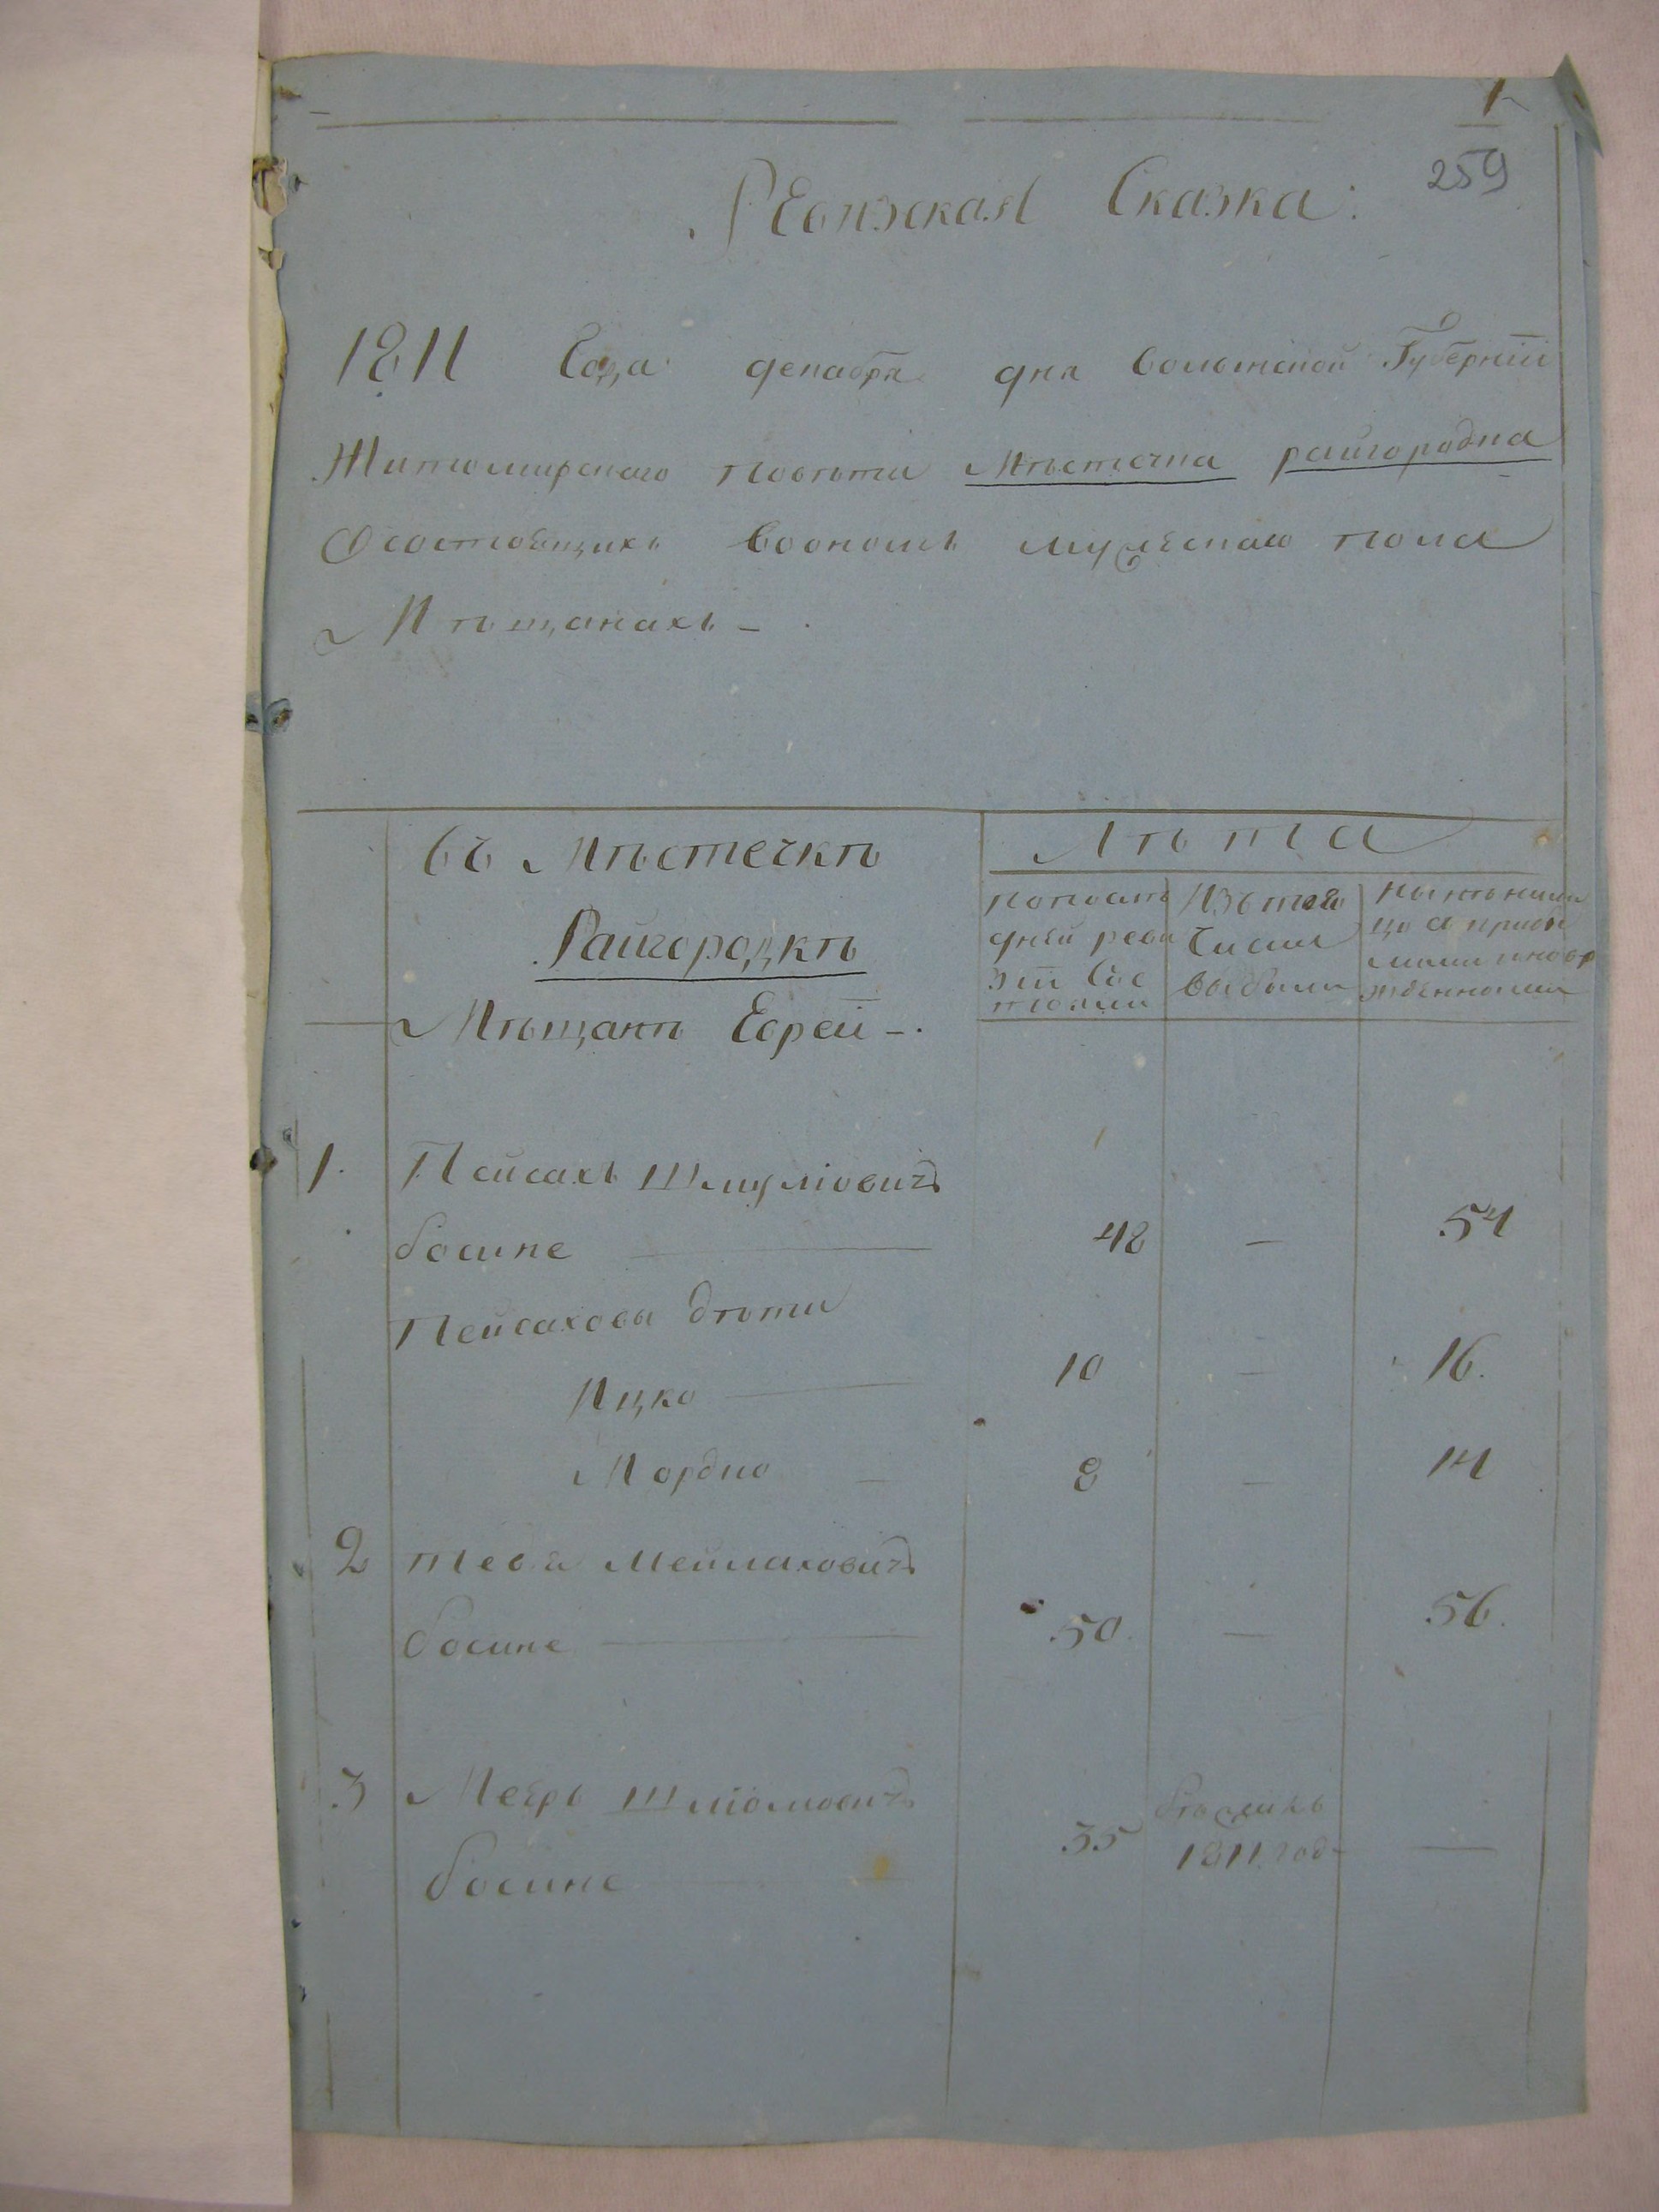 1
259
РЕвизская Сказка:
1811 Года декабря дня волынской Губерніи
Житомирскаго повѣта Мѣстечка райгородка
Осостоящихъ воономъ мужескаго пола
Мѣщанахъ -
въ Мѣстечкѣ
Райгородкѣ
Мѣщанѣ Еврей -.
Лѣта
попослѣ
дней реви
зіи Сос
тояли
Изътого
Числа
выбыли
нынѣ
1. Пейсахъ Шмуліовичъ
босине 48 — 54
Пейсаховы дѣти
Ицко 10 — 16.
Мордко 8 — 14
2 тевя Мейлаховичъ
босине 50. — 56.
3 Меерь Шліомовичъ
босине 35 —
1811 год